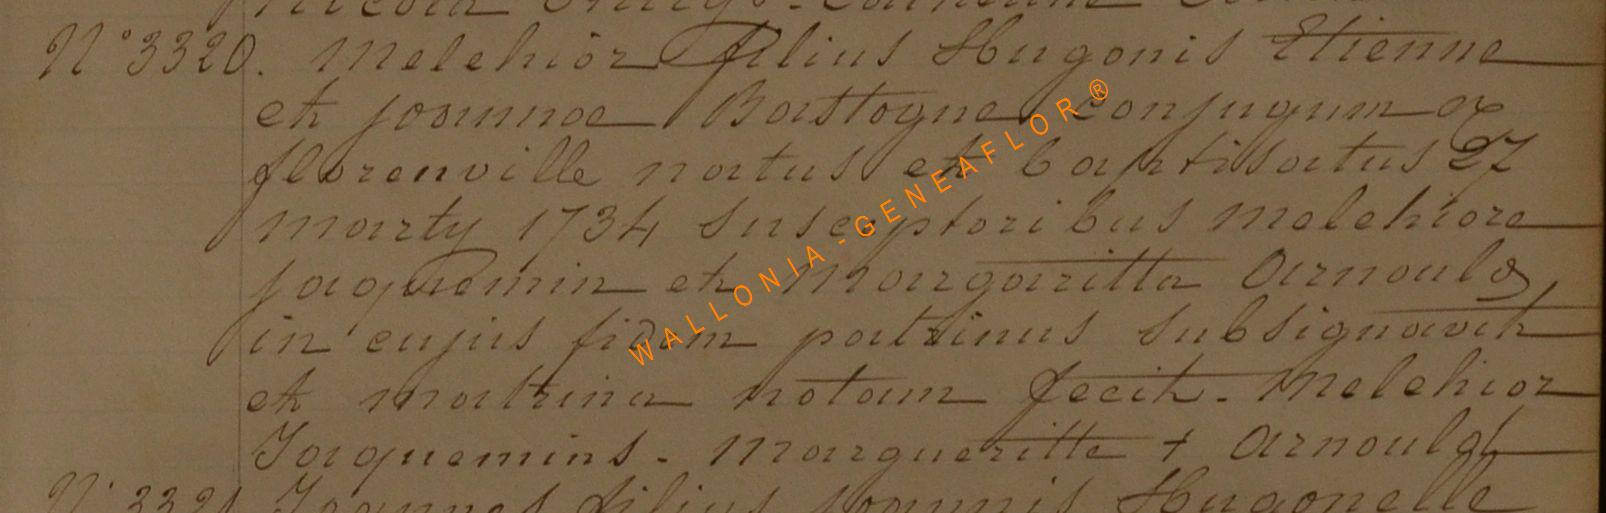 N° 3320. Melchior filius Hugonis Etienne
et joannae Bastogne conjugum ex
florenville natus et baptisatus 27
marty 1734 susceptoribus melchiore
jaquemin et margaritta arnould,
in cujus fidem patrinus subsignavit
et matrina notam fecit. Melchior
Jaquemins. margueritte + arnould
N° 3321 Joannes filius joannis Hugonelle
WALLONIA-GENEAFLOR®